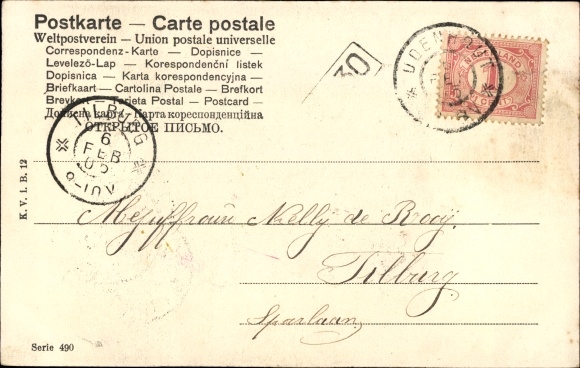 Postkarte — Carte postale
Weltpostverein — Union postale universelle
Correspondenz-Karte — Dopisnice
Levelező-Lap — Korespondenční listek
Dopisnica — Karta korespondencyjna —
Briefkaart — Cartolina Postale — Brefkort
Brevkort — Tarjeta Postal — Postcard —
Дописна карта — Карта кореспонденційна
ОТКРЫТОЕ ПИСЬМО.
TILBURG
6
FEB
05
8-10V
50
UDEN
NEDERLAND
1
CENT
K. V. i. B. 12
Mejuffrouw Nelly de Rooy.
Tilburg
Sparlaan
Serie 490